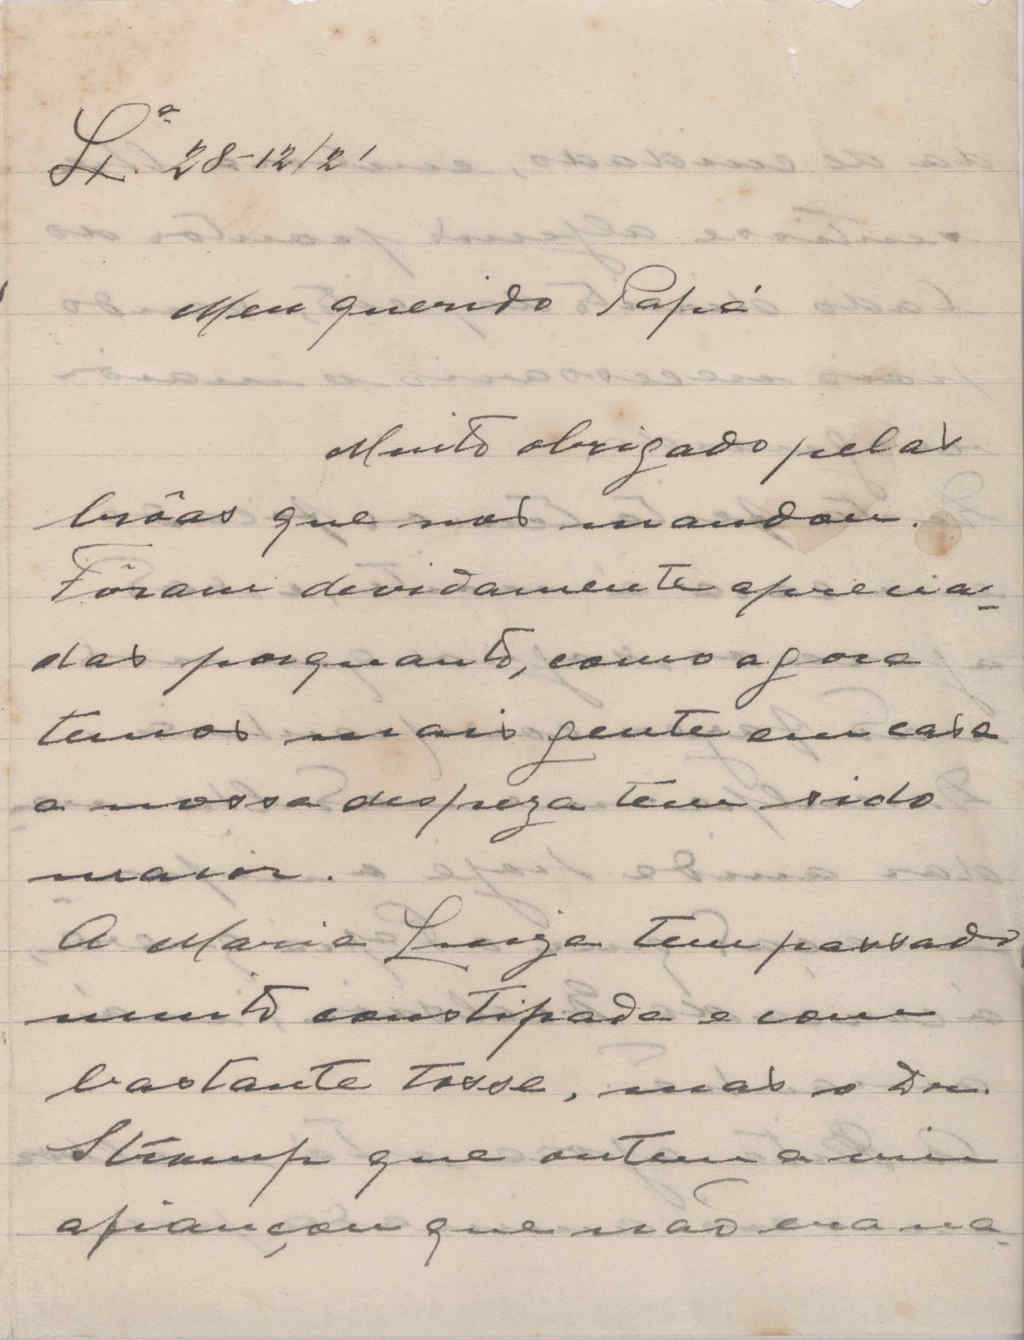 Lxª 28-12/21
Meu querido Papá
Muito obrigado pelas
brôas que nos mandou.
Fôram devidamente aprecia-
das porquanto, como agora
temos mais gente em casa
a nossa despeza tem sido
maior.
A Maria Luiza tem passado
muito constipada e com
bastante tosse, mas o Dr.
Stromp que ontem a viu
afiançou que não era na-